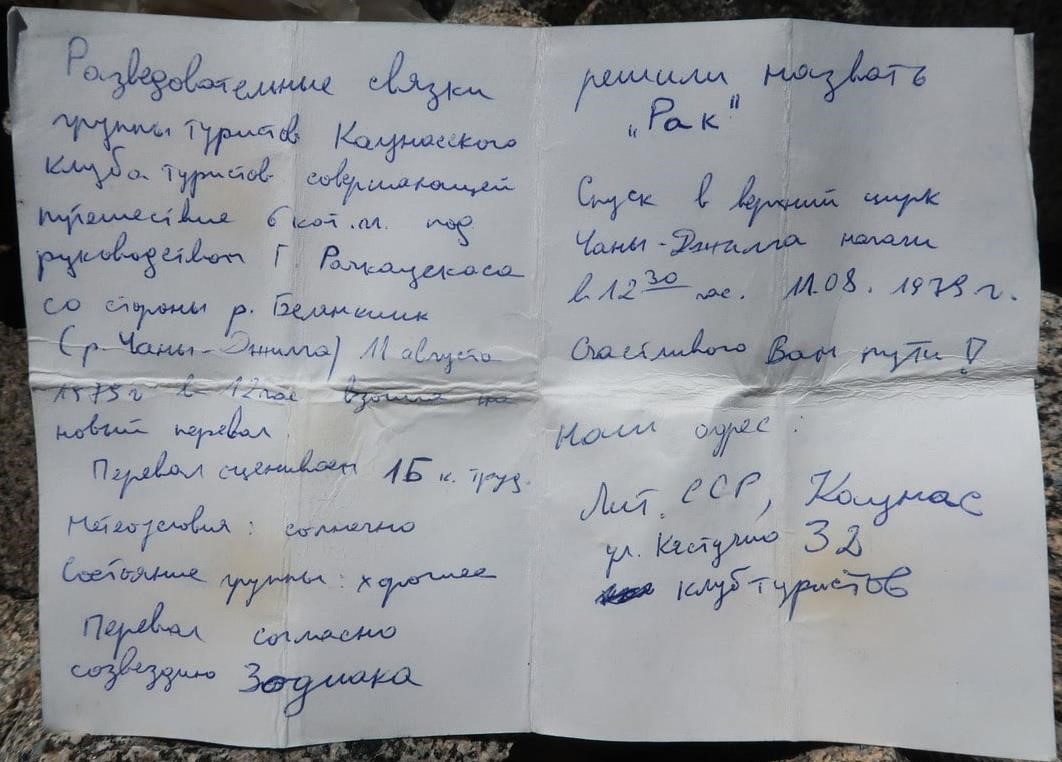 Разведовательные связки
группы туристов Каунасского
клуба туристов совершающей
путешествие 6 кат. под
руководством Г. Рачкаускаса
со стороны р. Беляникиик
(р. Чаны-Джилга) 11 августа
1979 г в 12 час взошла на
новый перевал
Перевал оцениваем 1Б к. труд.
Метеоусловия: солнечно
Состояние группы: хорошее
Перевал согласно
созвездию Зодиака
решили назвать
„Рак"
Спуск в верхний цирк
Чаны-Джилга начали
в 12 30 час. 11.08.1979 г.
Счастливого Вам пути!
Наш адрес:
Лит. ССР, Каунас
ул. Кястучио 32
клуб туристов